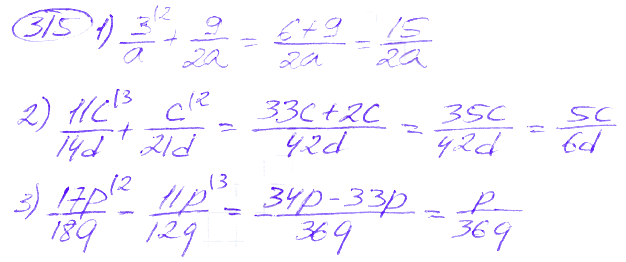 315 1) 3^{\2}/a + 9/2a = 6+9/2a = 15/2a
2) 11c^{\3}/14d + c^{\2}/21d = 33c+2c/42d = 35c/42d = 5c/6d
3) 17p^{\2}/18q - 11p^{\3}/12q = 34p-33p/36q = p/36q